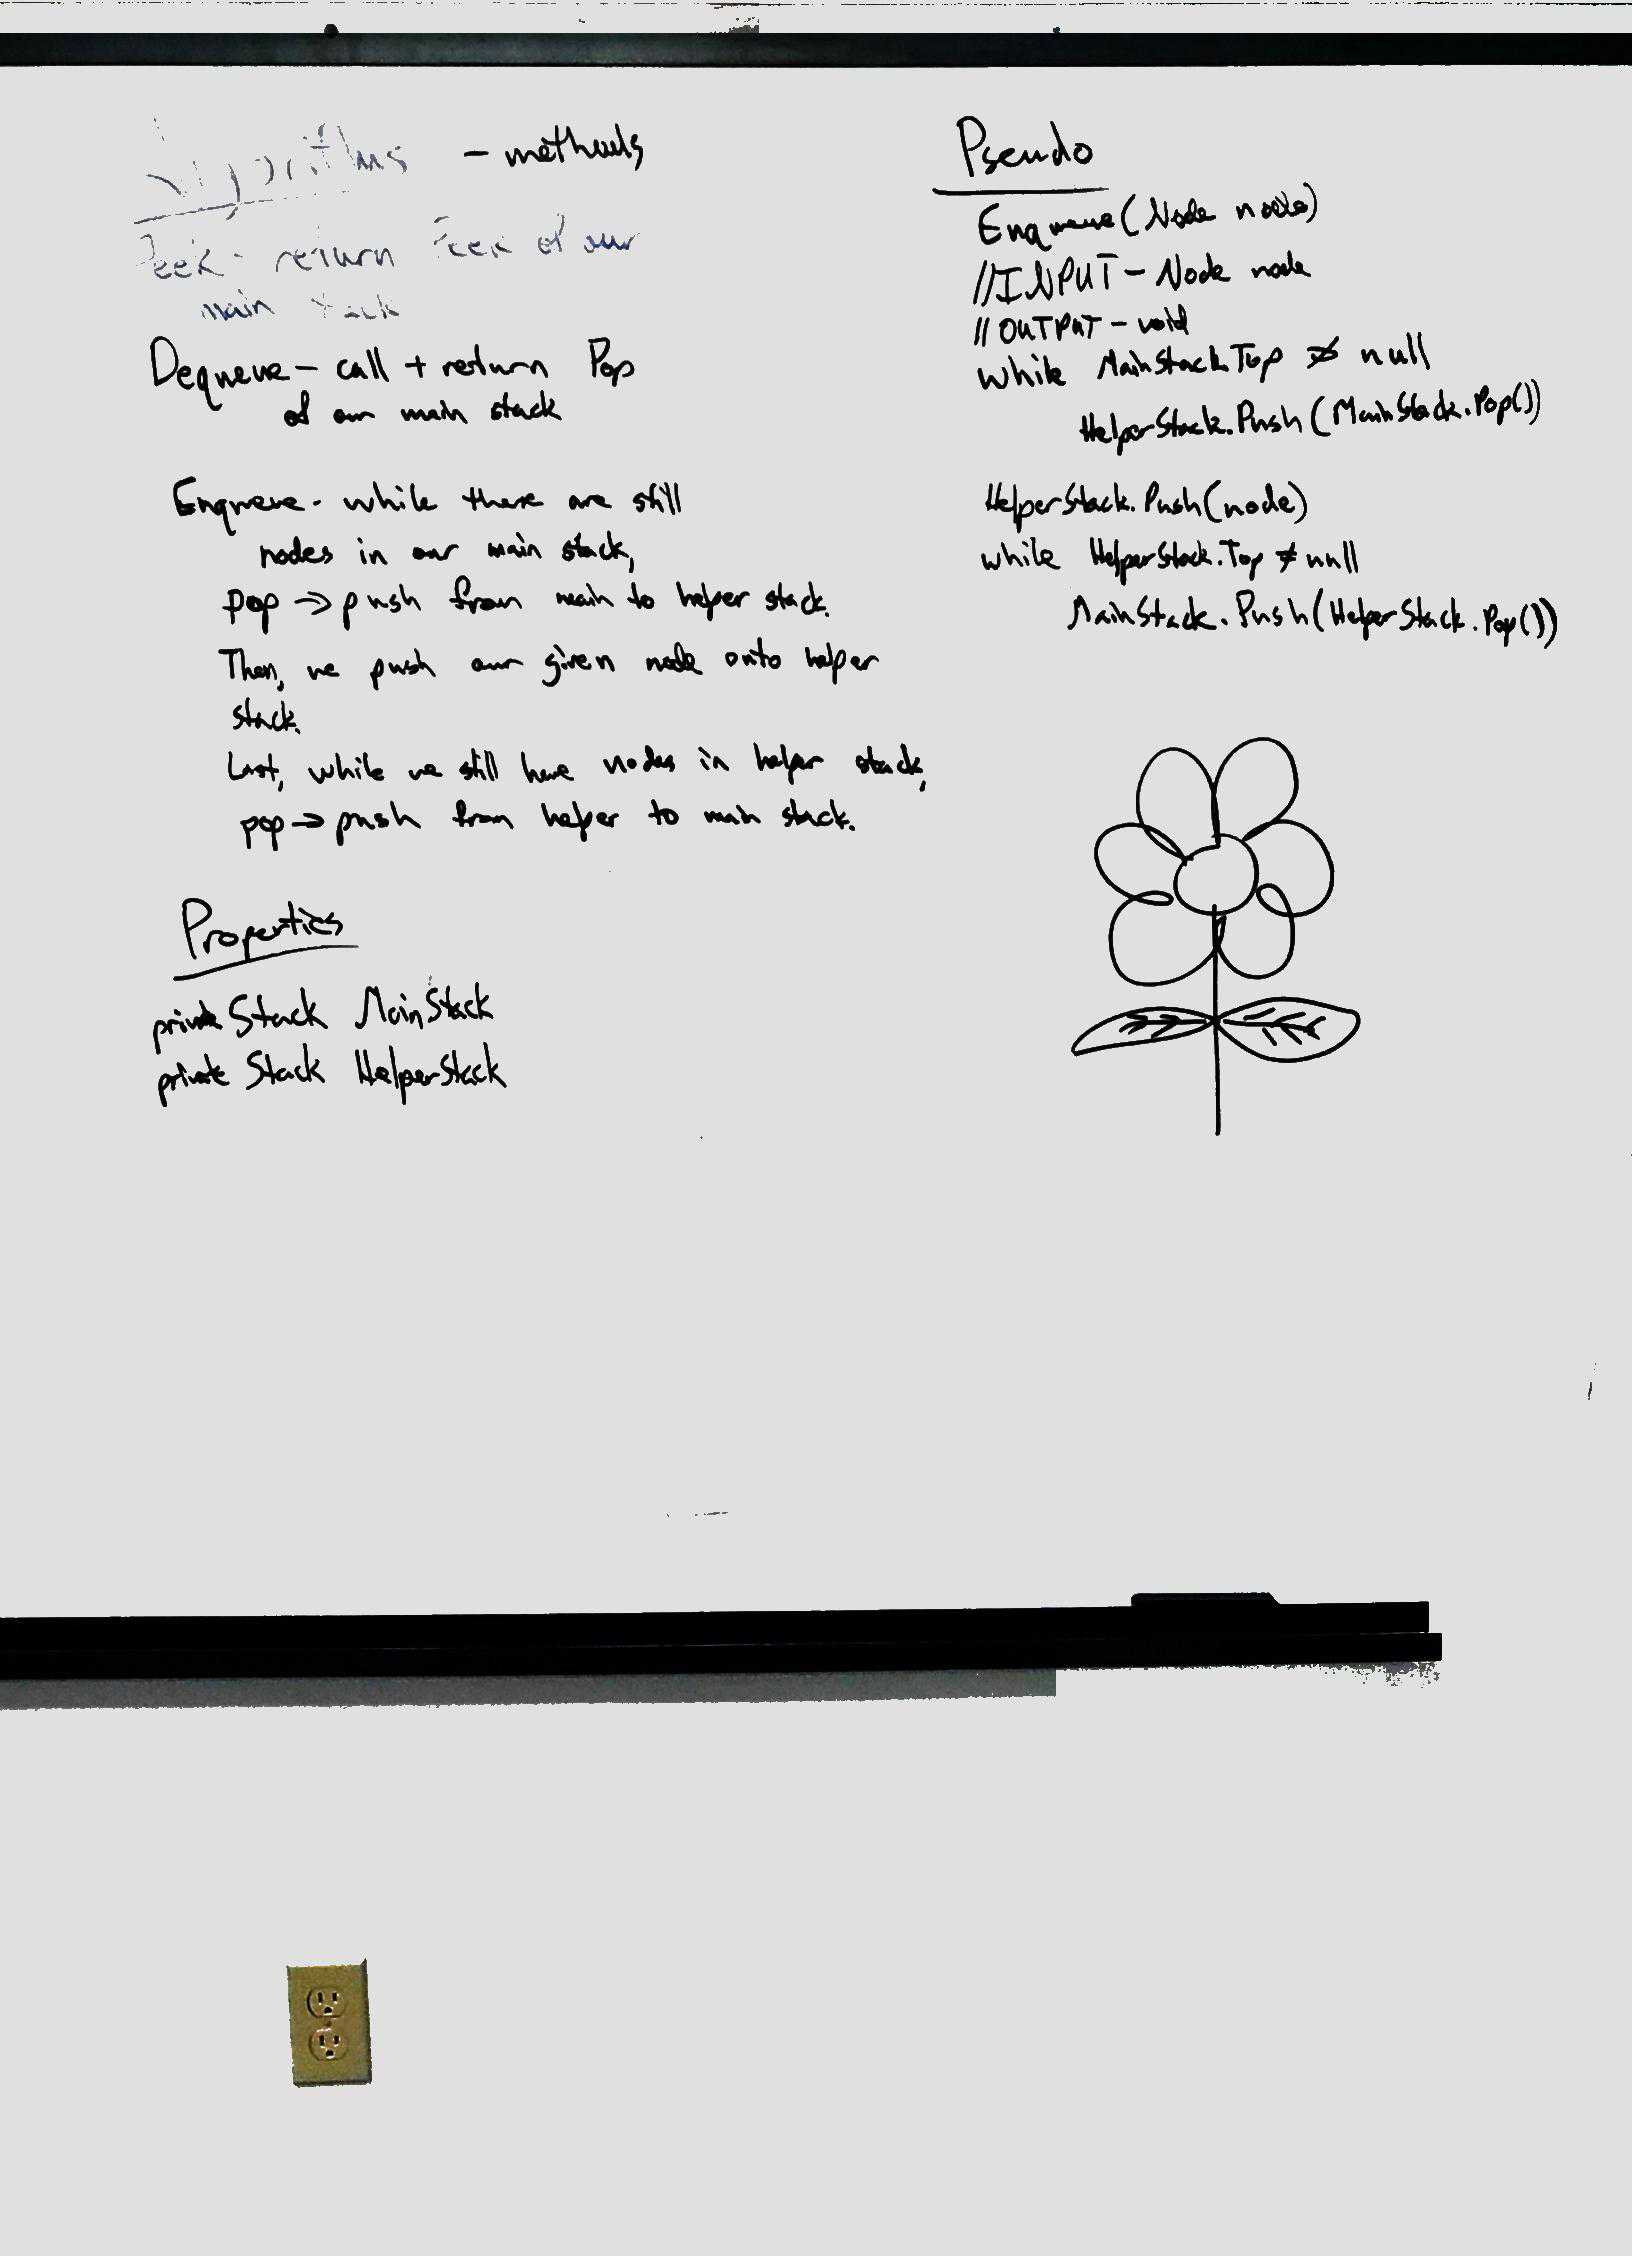 Algorithms - methods
Peek - return Peek of our
main stack
Dequeue - call + return Pop
of our main stack
Enqueue - while there are still
nodes in our main stack,
pop → push from main to helper stack.
Then, we push our given node onto helper
stack.
Last, while we still have nodes in helper stack,
pop → push from helper to main stack.
Properties
private Stack MainStack
private Stack HelperStack
Pseudo
Enqueue(Node node)
//INPUT - Node node
//OUTPUT - void
while MainStack.Top ≠ null
HelperStack.Push(MainStack.Pop())
HelperStack.Push(node)
while HelperStack.Top ≠ null
MainStack.Push(HelperStack.Pop())